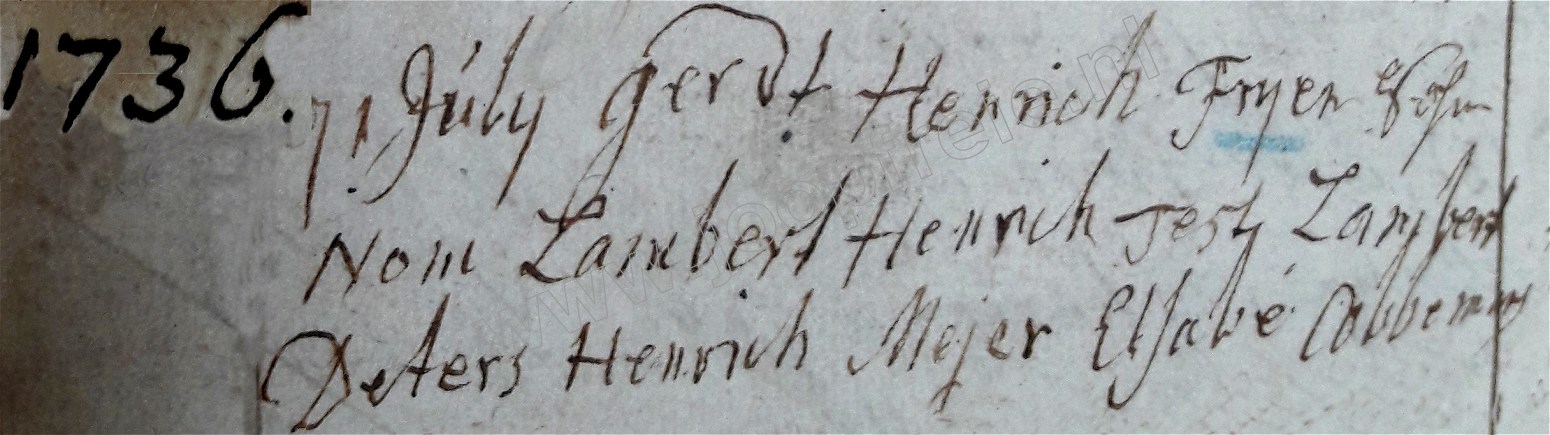 1736.
71 July Gerdt Henrich Fryen Sohn
Nom Lambert Henrich Test Lambert
Deters Henrich Mejer Elsabe Cobbemeyers